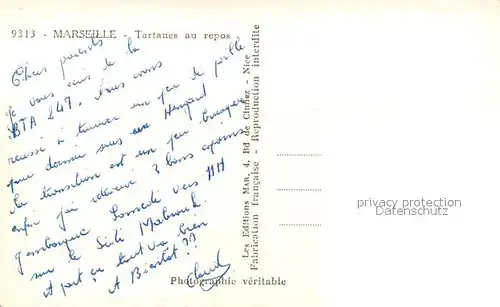 9313 - MARSEILLE - Tartanes au repos
Chers parents
je vous écris de la
BTA 247. Nous avons
réussi à trouver un peu de paille
pour dormir sous un Hangard
la transition est un peu brusque
enfin j'ai retrouvé 3 bons copains
J'embarque Samedi vers
sur le Sidi Mabrouk.
A part ça tout va bien
A Bientôt ??
Claude
Photographie véritable
Les Editions MAR, 4, Bd de Cimiez - Nice
Fabrication française - Reproduction interdite
privacy protection
Datenschutz